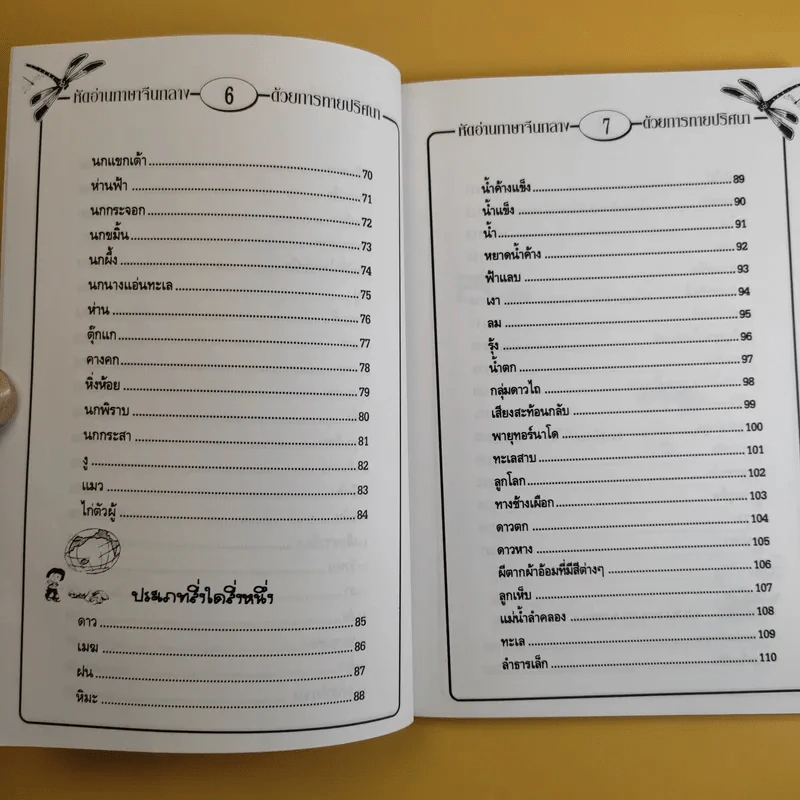 หัดอ่านภาษาจีนกลาง 6 ด้วยการทายปริศนา
นกแขกเต้า 70
ห่านฟ้า 71
นกกระจอก 72
นกขมิ้น 73
นกผึ้ง 74
นกนางแอ่นทะเล 75
ห่าน 76
ตุ๊กแก 77
คางคก 78
หิ่งห้อย 79
นกพิราบ 80
นกกระสา 81
งู 82
แมว 83
ไก่ตัวผู้ 84
ประเภทสิ่งใดสิ่งหนึ่ง
ดาว 85
เมฆ 86
ฝน 87
หิมะ 88
หัดอ่านภาษาจีนกลาง 7 ด้วยการทายปริศนา
น้ำค้างแข็ง 89
น้ำแข็ง 90
น้ำ 91
หยาดน้ำค้าง 92
ฟ้าแลบ 93
เงา 94
ลม 95
รุ้ง 96
น้ำตก 97
กลุ่มดาวไถ 98
เสียงสะท้อนกลับ 99
พายุทอร์นาโด 100
ทะเลสาบ 101
ลูกโลก 102
ทางช้างเผือก 103
ดาวตก 104
ดาวหาง 105
ผีตากผ้าอ้อมที่มีสีต่างๆ 106
ลูกเห็บ 107
แม่น้ำลำคลอง 108
ทะเล 109
ลำธารเล็ก 110